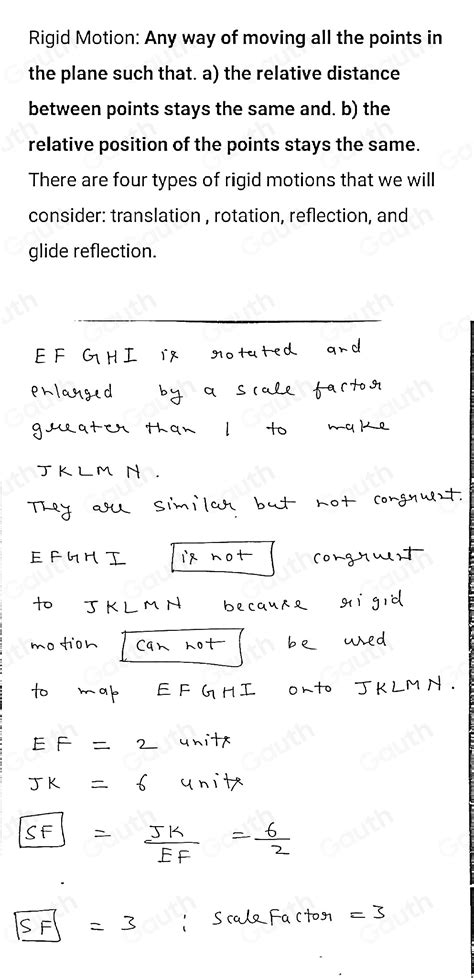 Rigid Motion: Any way of moving all the points in
the plane such that. a) the relative distance
between points stays the same and. b) the
relative position of the points stays the same.
There are four types of rigid motions that we will
consider: translation , rotation, reflection, and
glide reflection.
EFGHI is rotated and
enlarged by a scale factor
greater than 1 to make
JKLMN.
They are similar but not congruent.
EFGHI is not congruent
to JKLMN because rigid
motion can not be used
to map EFGHI onto JKLMN.
EF = 2 units
JK = 6 units
SF = JK/EF = 6/2
SF = 3 ; Scale Factor = 3